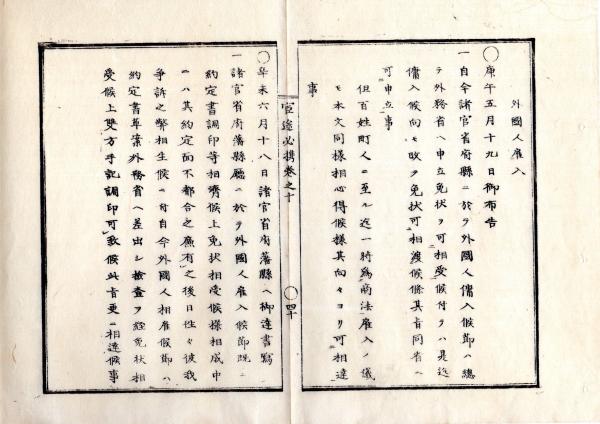 外國人雇入
〇庚午五月十九日御布告
一自今諸官省府縣ニ於テ外國人傭入候節ハ總
テ外務省ヘ申立免状ヲ可相受候付テハ是迄
傭入候向モ改テ免状可相渡候條其旨同省ヘ
可申立事
但百姓町人ニ至ル迄一時為商法雇入ノ儀
モ本文同様相心得候様其向々ヨリ可相達
事
官途必携巻之十
〇四十
〇辛未六月十八日諸官省府藩縣ヘ御達書寫
一諸官省府藩縣廳ニ於テ外國人雇入候節既ニ
約定書調印等相濟候上免状相受候様相成中
ニハ其約定面不都合之廉有之後日性々彼我
爭訴之弊相生候ニ付自今外國人相雇候節ハ
約定書草案外務省ヘ差出シ檢査ヲ經免状相
受候上雙方手記調印可致候此旨更ニ相達候事